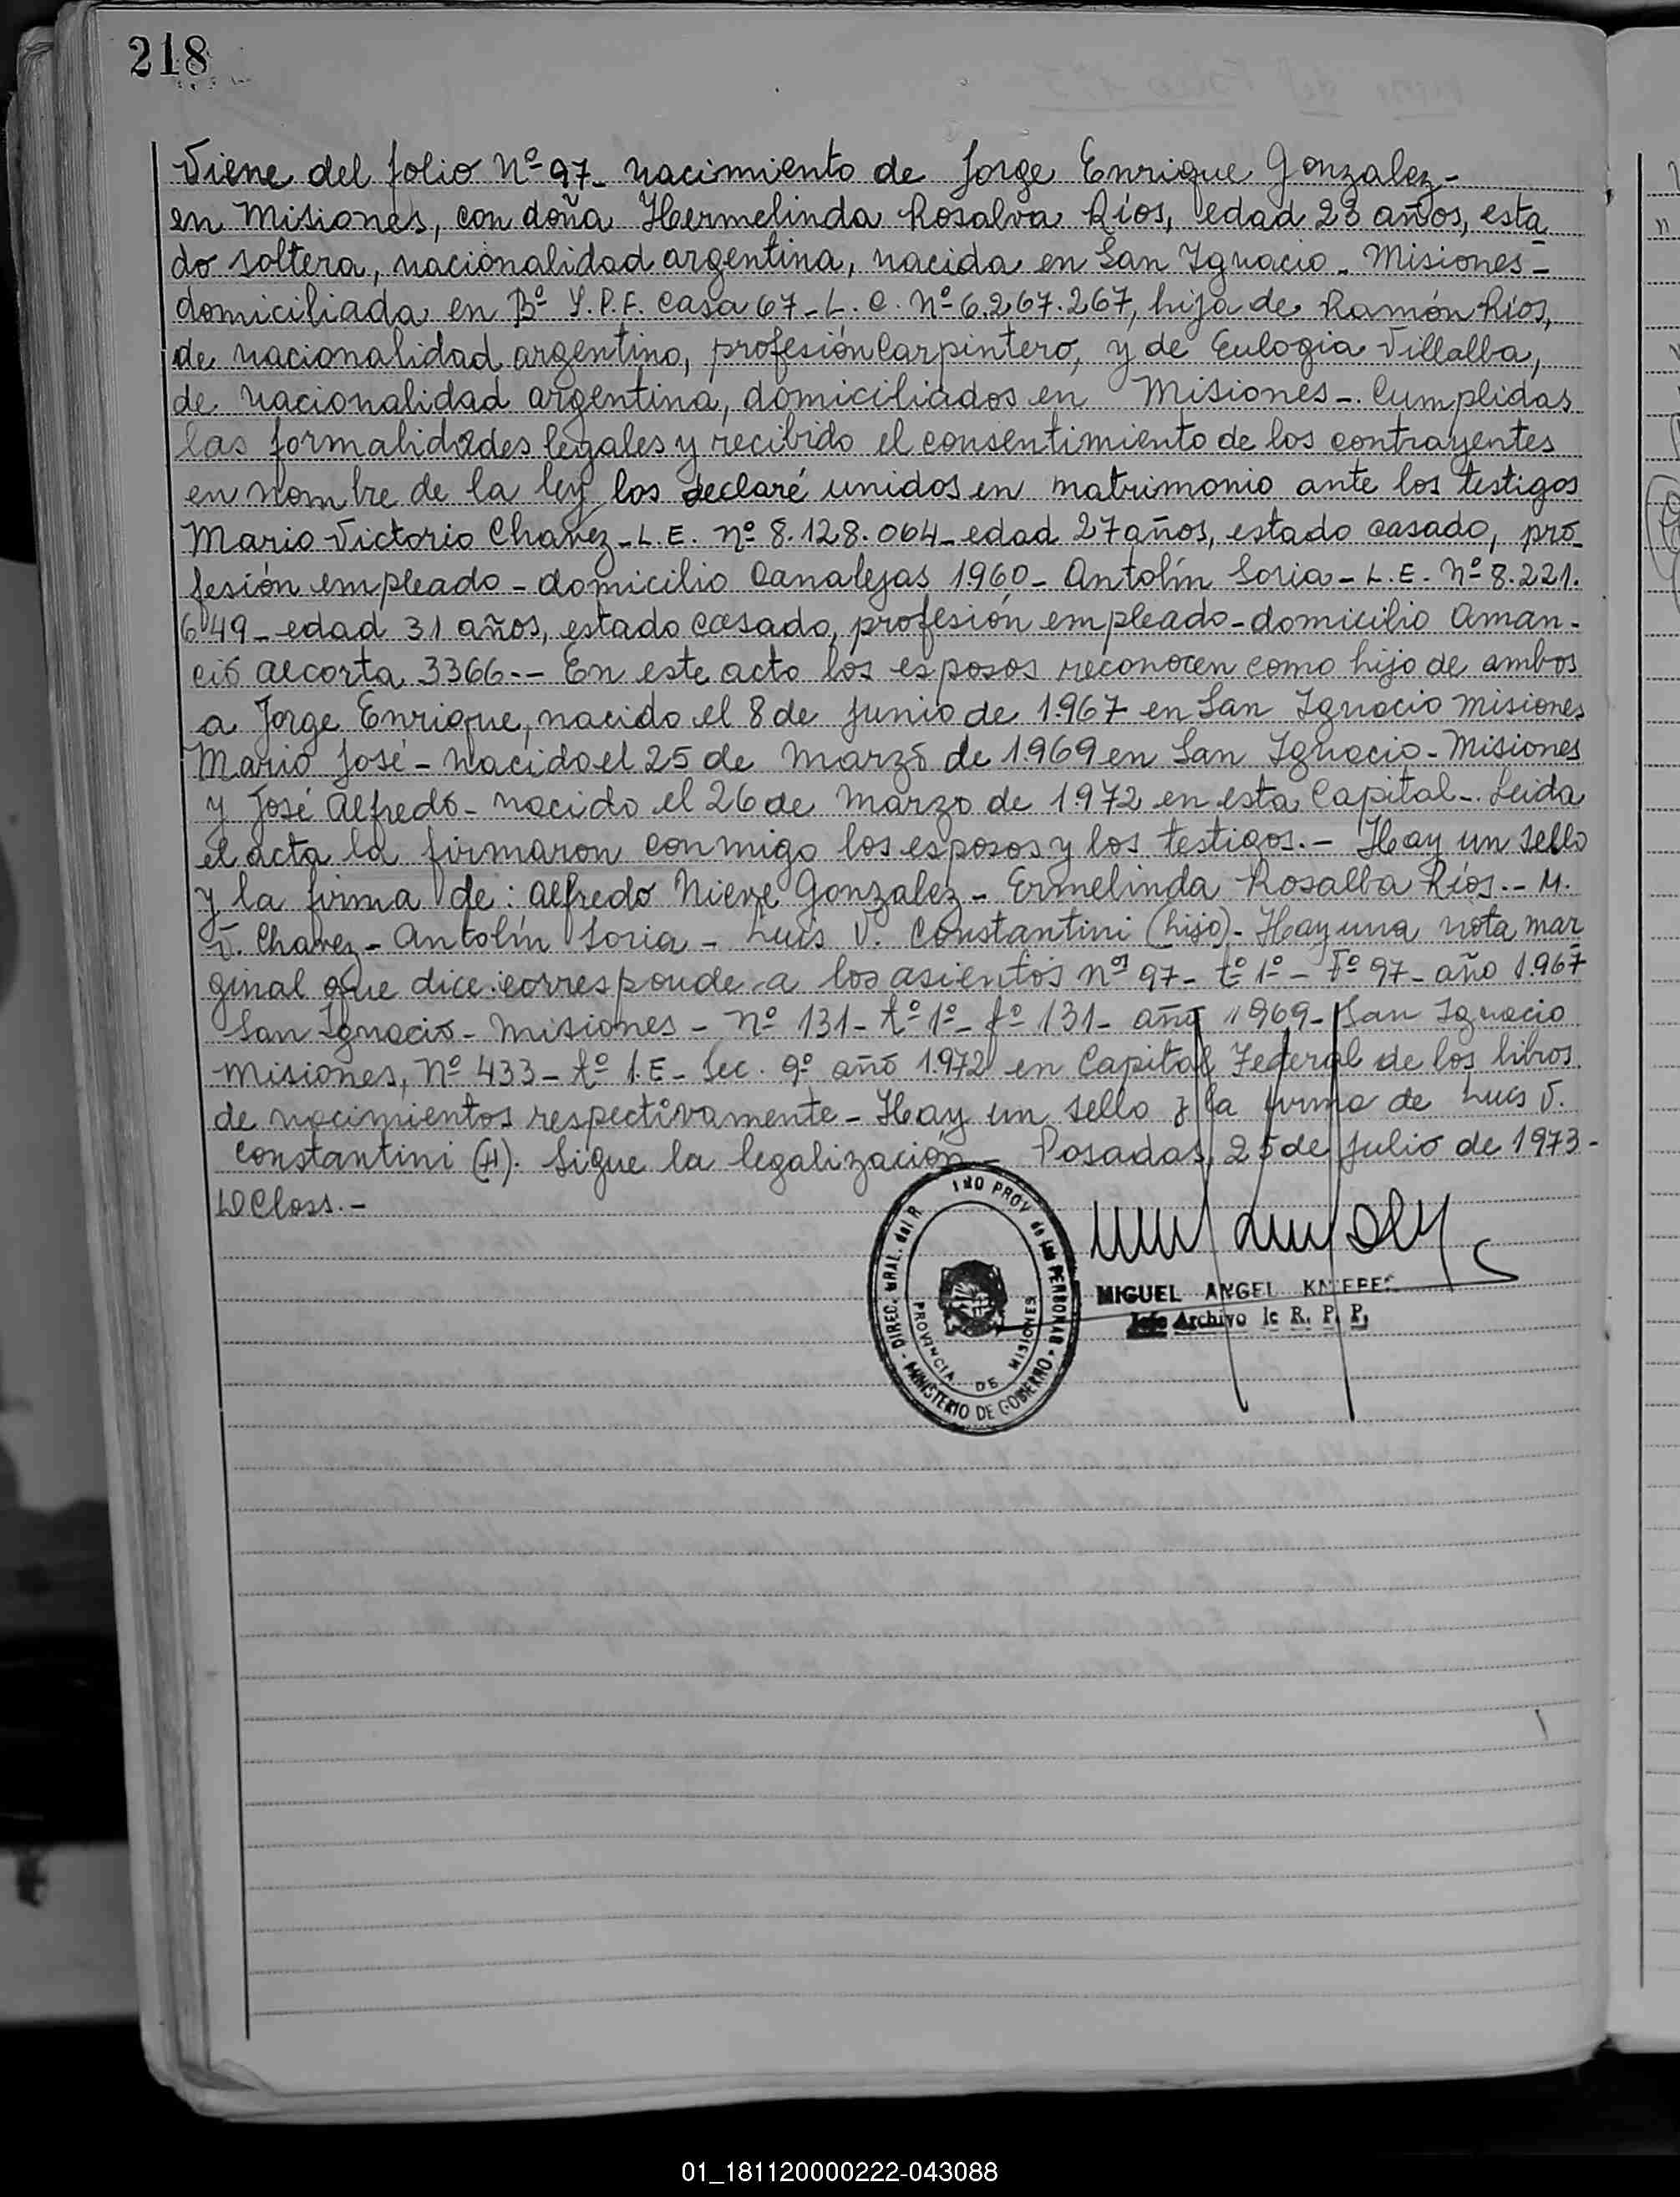 218
Viene del folio Nº 97- nacimiento de Jorge Enrique Gonzalez-
en Misiones, con doña Hermelinda Rosalva Ríos, edad 23 años, esta
do soltera, nacionalidad argentina, nacida en San Ignacio - Misiones -
domiciliada en Bº Y.P.F. casa 67 - L. C. Nº 6.267.267, hija de Ramón Ríos,
de nacionalidad argentino, profesión Carpintero, y de Eulogia Villalba,
de nacionalidad argentina, domiciliados en Misiones -. Cumplidas
las formalidades legales y recibido el consentimiento de los contrayentes
en nombre de la ley los declaré unidos en matrimonio ante los testigos
Mario Victorio Chavez - L.E. nº 8.128.064 - edad 27 años, estado casado, pro-
fesión empleado - domicilio Canalejas 1960 - Antolín Soria - L.E. Nº 8.221.
649 - edad 31 años, estado casado, profesión empleado - domicilio Aman-
cio Alcorta 3366.-- En este acto los esposos reconocen como hijo de ambos
a Jorge Enrique, nacido el 8 de Junio de 1.967 en San Ignacio Misiones
Mario José - nacido el 25 de Marzo de 1.969 en San Ignacio - Misiones
y José Alfredo - nacido el 26 de Marzo de 1.972 en esta Capital -. Leida
el acta la firmaron conmigo los esposos y los testigos.- Hay un sello
y la firma de: Alfredo Nieve Gonzalez - Ermelinda Rosalba Ríos.- M.
V. Chavez - Antolín Soria - Luis V. Constantini (hijo) - Hay una nota mar
ginal que dice: corresponde a los asientos nºs 97 - tº 1º - Fº 97 - año 1.967
San Ignacio - Misiones - Nº 131 - tº 1º - fº 131 - año 1969 - San Ignacio
Misiones, Nº 433 - tº 1.E - Sec. 9º año 1.972 en Capital Federal de los libros
de nacimientos respectivamente - Hay un sello y la firma de Luis V.
Constantini (H). Sigue la legalización - Posadas, 25 de Julio de 1973 -
DIREC. GRAL. del R PROV de las PERSONAS - MINISTERIO DE GOBIERNO -
PROVINCIA DE MISIONES
MIGUEL ANGEL
Jefe Archivo R. P. P.
01_181120000222-043088